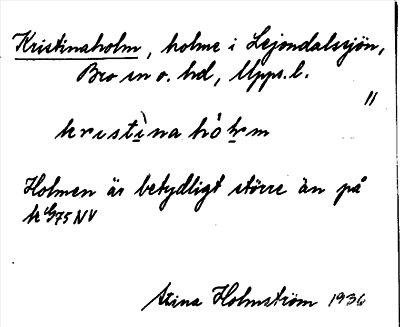 Kristinaholm, holme i Lejondalssjön,
Bro sn o. hd, Upps. l.
"
kristìna hó̀l̥m
Holmen är betydligt större än på
Stina Holmström 1936